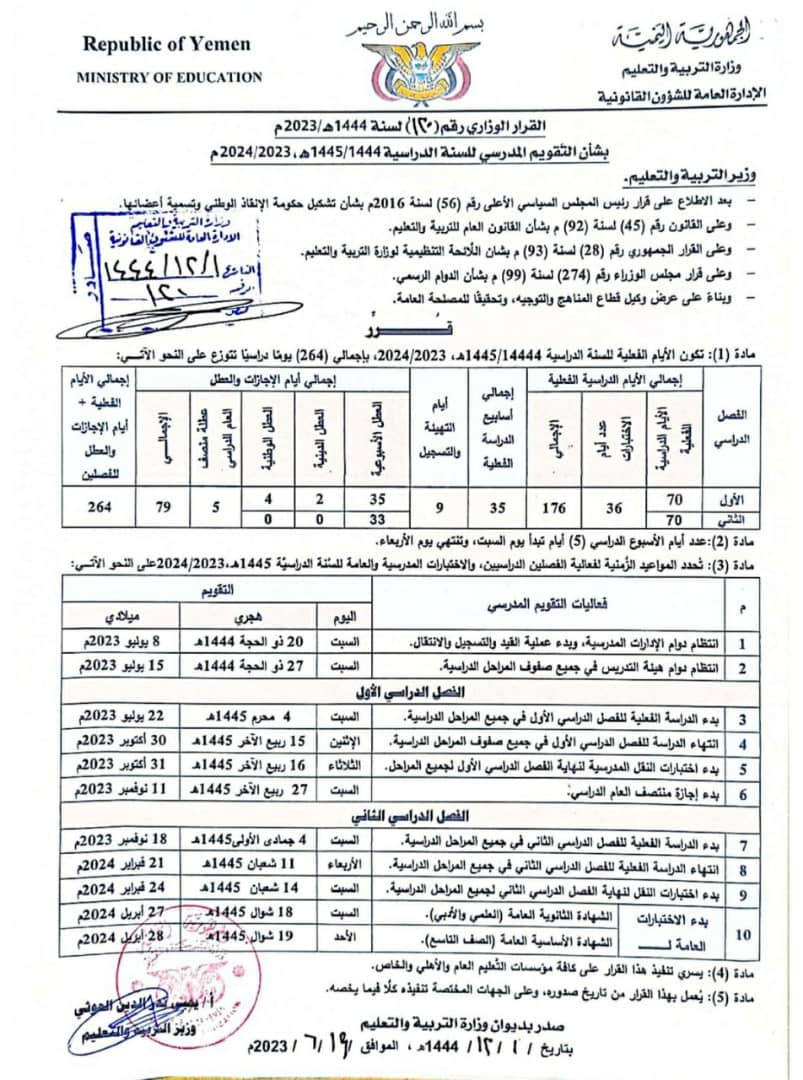 بسم الله الرحمن الرحيم
الجمهورية اليمنية
وزارة التربية والتعليم
الإدارة العامة للشؤون القانونية
Republic of Yemen
MINISTRY OF EDUCATION
القرار الوزاري رقم (١٢٠) لسنة 1444هـ/2023م
بشأن التقويم المدرسي للسنة الدراسية 1445/1444هـ، 2024/2023م
وزير التربية والتعليم.
– بعد الاطلاع على قرار رئيس المجلس السياسي الأعلى رقم (56) لسنة 2016م بشأن تشكيل حكومة الإنقاذ الوطني وتسمية أعضائها.
– وعلى القانون رقم (45) لسنة (92) م بشأن القانون العام للتربية والتعليم.
– وعلى القرار الجمهوري رقم (28) لسنة (93) م بشأن اللائحة التنظيمية لوزارة التربية والتعليم.
– وعلى قرار مجلس الوزراء رقم (274) لسنة (99) م بشأن الدوام الرسمي.
– وبناءً على عرض وكيل قطاع المناهج والتوجيه، وتحقيقًا للمصلحة العامة.
وزارة التربية والتعليم
الإدارة العامة للشؤون القانونية
صادر
التاريخ ١٤٤٤/١٢/١
برقم ١٢٠
قرر
مادة (1): تكون الأيام الفعلية للسنة الدراسية 1445/14444هـ، 2024/2023، بإجمالي (264) يومًا دراسيًا تتوزع على النحو الآتي:
الفصل الدراسي
إجمالي الأيام الدراسية الفعلية
الأيام الدراسية الفعلية
عدد أيام الاختبارات
الإجمالي
إجمالي أسابيع الدراسة الفعلية
أيام التهيئة والتسجيل
إجمالي أيام الإجازات والعطل
العطل الأسبوعية
العطل الدينية
العطل الوطنية
عطلة منتصف العام الدراسي
الإجمالي
إجمالي الأيام الفعلية + أيام الإجازات والعطل للفصلين
الأول 70 36 176 35 9 35 2 4 5 79 264
الثاني 70 33 0 0
مادة (2): عدد أيام الأسبوع الدراسي (5) أيام تبدأ يوم السبت، وتنتهي يوم الأربعاء.
مادة (3): تُحدد المواعيد الزمنية لفعالية الفصلين الدراسيين، والاختبارات المدرسية والعامة للسنة الدراسية 1445هـ، 2024/2023على النحو الآتي:
م فعاليات التقويم المدرسي التقويم
اليوم هجري ميلادي
1 انتظام دوام الإدارات المدرسية، وبدء عملية القيد والتسجيل والانتقال. السبت 20 ذو الحجة 1444هـ 8 يوليو 2023م
2 انتظام دوام هيئة التدريس في جميع صفوف المراحل الدراسية. السبت 27 ذو الحجة 1444هـ 15 يوليو 2023م
الفصل الدراسي الأول
3 بدء الدراسة الفعلية للفصل الدراسي الأول في جميع المراحل الدراسية. السبت 4 محرم 1445هـ 22 يوليو 2023م
4 انتهاء الدراسة للفصل الدراسي الأول في جميع صفوف المراحل الدراسية. الإثنين 15 ربيع الآخر 1445هـ 30 أكتوبر 2023م
5 بدء اختبارات النقل المدرسية لنهاية الفصل الدراسي الأول لجميع المراحل. الثلاثاء 16 ربيع الآخر 1445هـ 31 أكتوبر 2023م
6 بدء إجازة منتصف العام الدراسي. السبت 27 ربيع الآخر 1445هـ 11 نوفمبر 2023م
الفصل الدراسي الثاني
7 بدء الدراسة الفعلية للفصل الدراسي الثاني في جميع المراحل الدراسية. السبت 4 جمادى الأولى1445هـ 18 نوفمبر 2023م
8 انتهاء الدراسة الفعلية للفصل الدراسي الثاني في جميع المراحل الدراسية. الأربعاء 11 شعبان 1445هـ 21 فبراير 2024م
9 بدء اختبارات النقل لنهاية الفصل الدراسي الثاني لجميع المراحل الدراسية. السبت 14 شعبان 1445هـ 24 فبراير 2024م
10 بدء الاختبارات العامة لـــ الشهادة الثانوية العامة (العلمي والأدبي). السبت 18 شوال 1445هـ 27 أبريل 2024م
الشهادة الأساسية العامة (الصف التاسع). الأحد 19 شوال 1445هـ 28 أبريل 2024م
مادة (4): يسري تنفيذ هذا القرار على كافة مؤسسات التعليم العام والأهلي والخاص.
مادة (5): يُعمل بهذا القرار من تاريخ صدوره، وعلى الجهات المختصة تنفيذه كلًا فيما يخصه.
صدر بديوان وزارة التربية والتعليم
بتاريخ / ١ / ١٢ / 1444هـ ، الموافق ١٩/ ٦ / 2023م
أ/ يحيى بدر الدين الحوثي
وزير التربية والتعليم